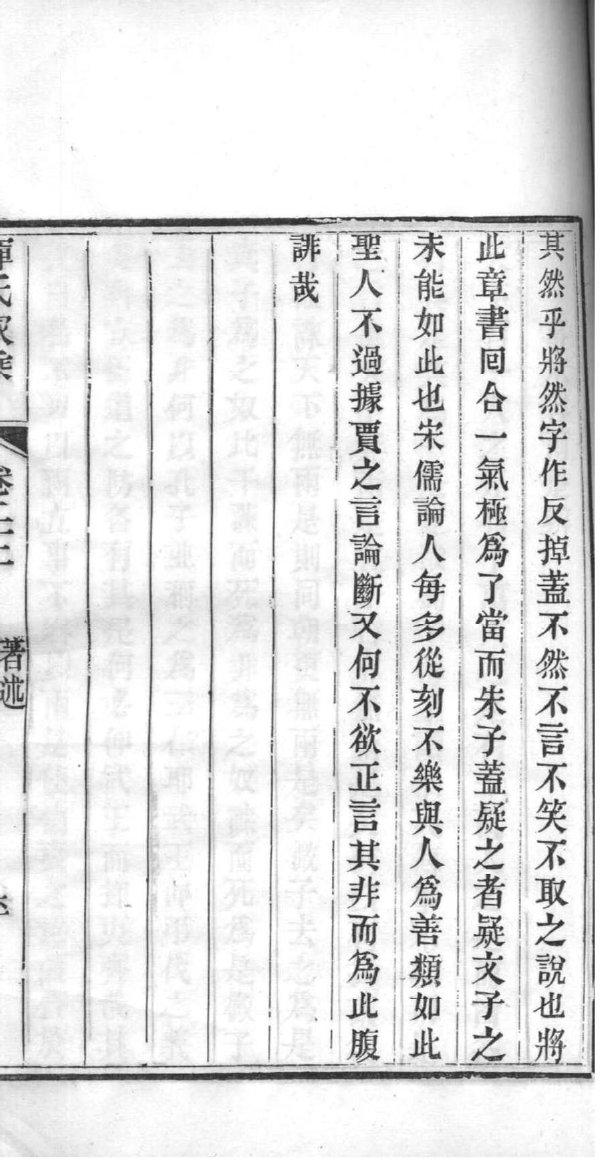 其然乎將然字作反掉蓋不然不言不笑不取之說也將
此章書囘合一氣極爲了當而朱子蓋疑之者疑文子之
未能如此也宋儒論人每多從刻不樂與人爲善類如此
聖人不過據賈之言論斷又何不欲正言其非而爲此腹
誹哉
惲氏家乘
著述